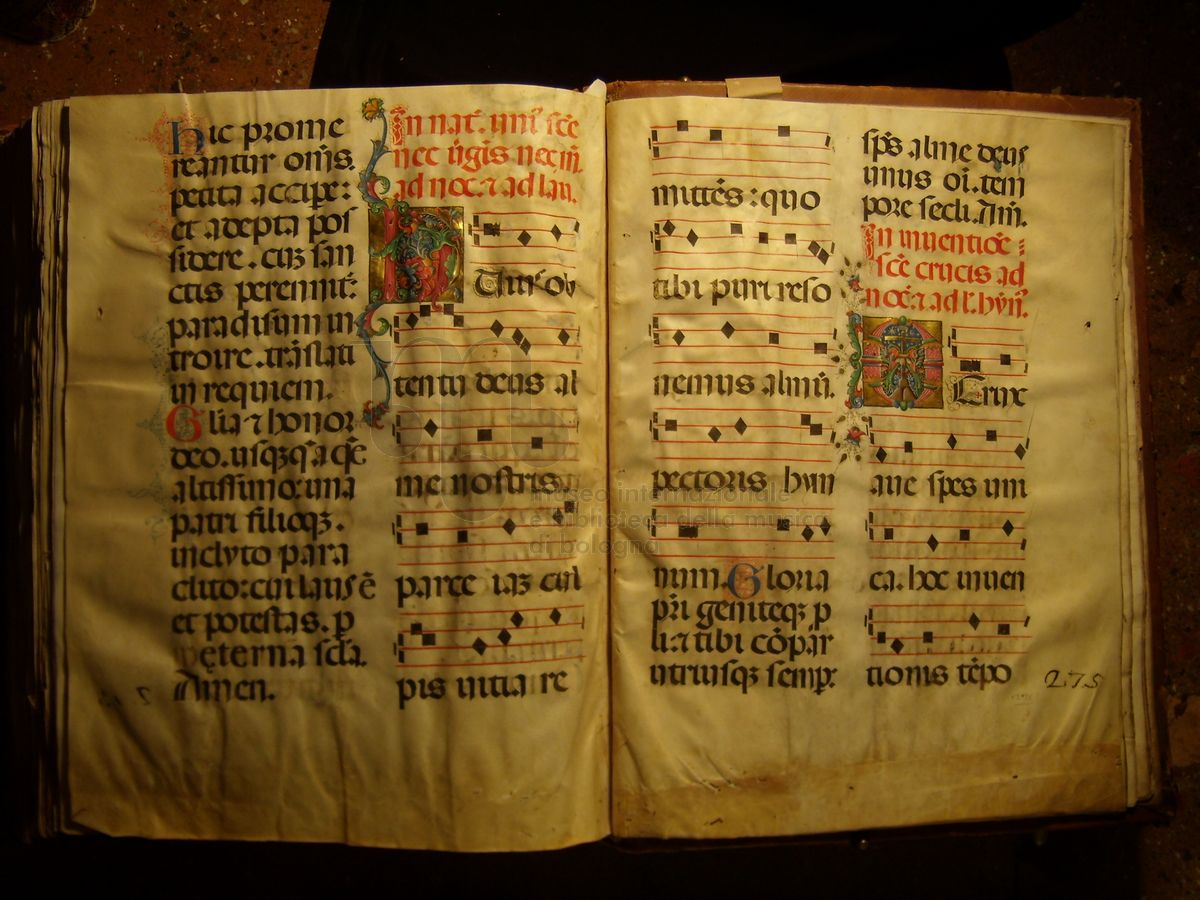 hic prome
reantur om̄s.
petita accipe:
et adepta pos
sidere. cuʒ san
ctis perennit̄:
paradisum in
troire. trāslati
in requiem.
Gl̄ia ⁊ honor
deo. usqʒqʒa qȩ̄
altissimo: una
patri filioqʒ.
inclyto para
clito: cui laus ē
et potestas. p̱
eterna scl̄a.
Amen.
In nat. uni᾽ sc̄e
nec ūgis nec m̄.
ad noc̄. ⁊ ad lau.
Hui᾽ ob
tentu deus al
me nostris
parce iaʒ cul
pis uitia re
mittēs: quo
tibi puri reso
nemus almū.
pectoris hym
num. Gloria
pr̄i geniteqʒ p
li: ⁊ tibi cōpar
utriusqʒ semp̱:
sp̄s alme deus
unus oī. tem
pore secli. Am̄.
In inuentiōe
sc̄e crucis ad
noc̄. ⁊ ad l. hyn̄.
Crux
aue spes uni
ca. hoc inuen
tionis tēpo
275
museo internazionale
e biblioteca della musica
di bologna